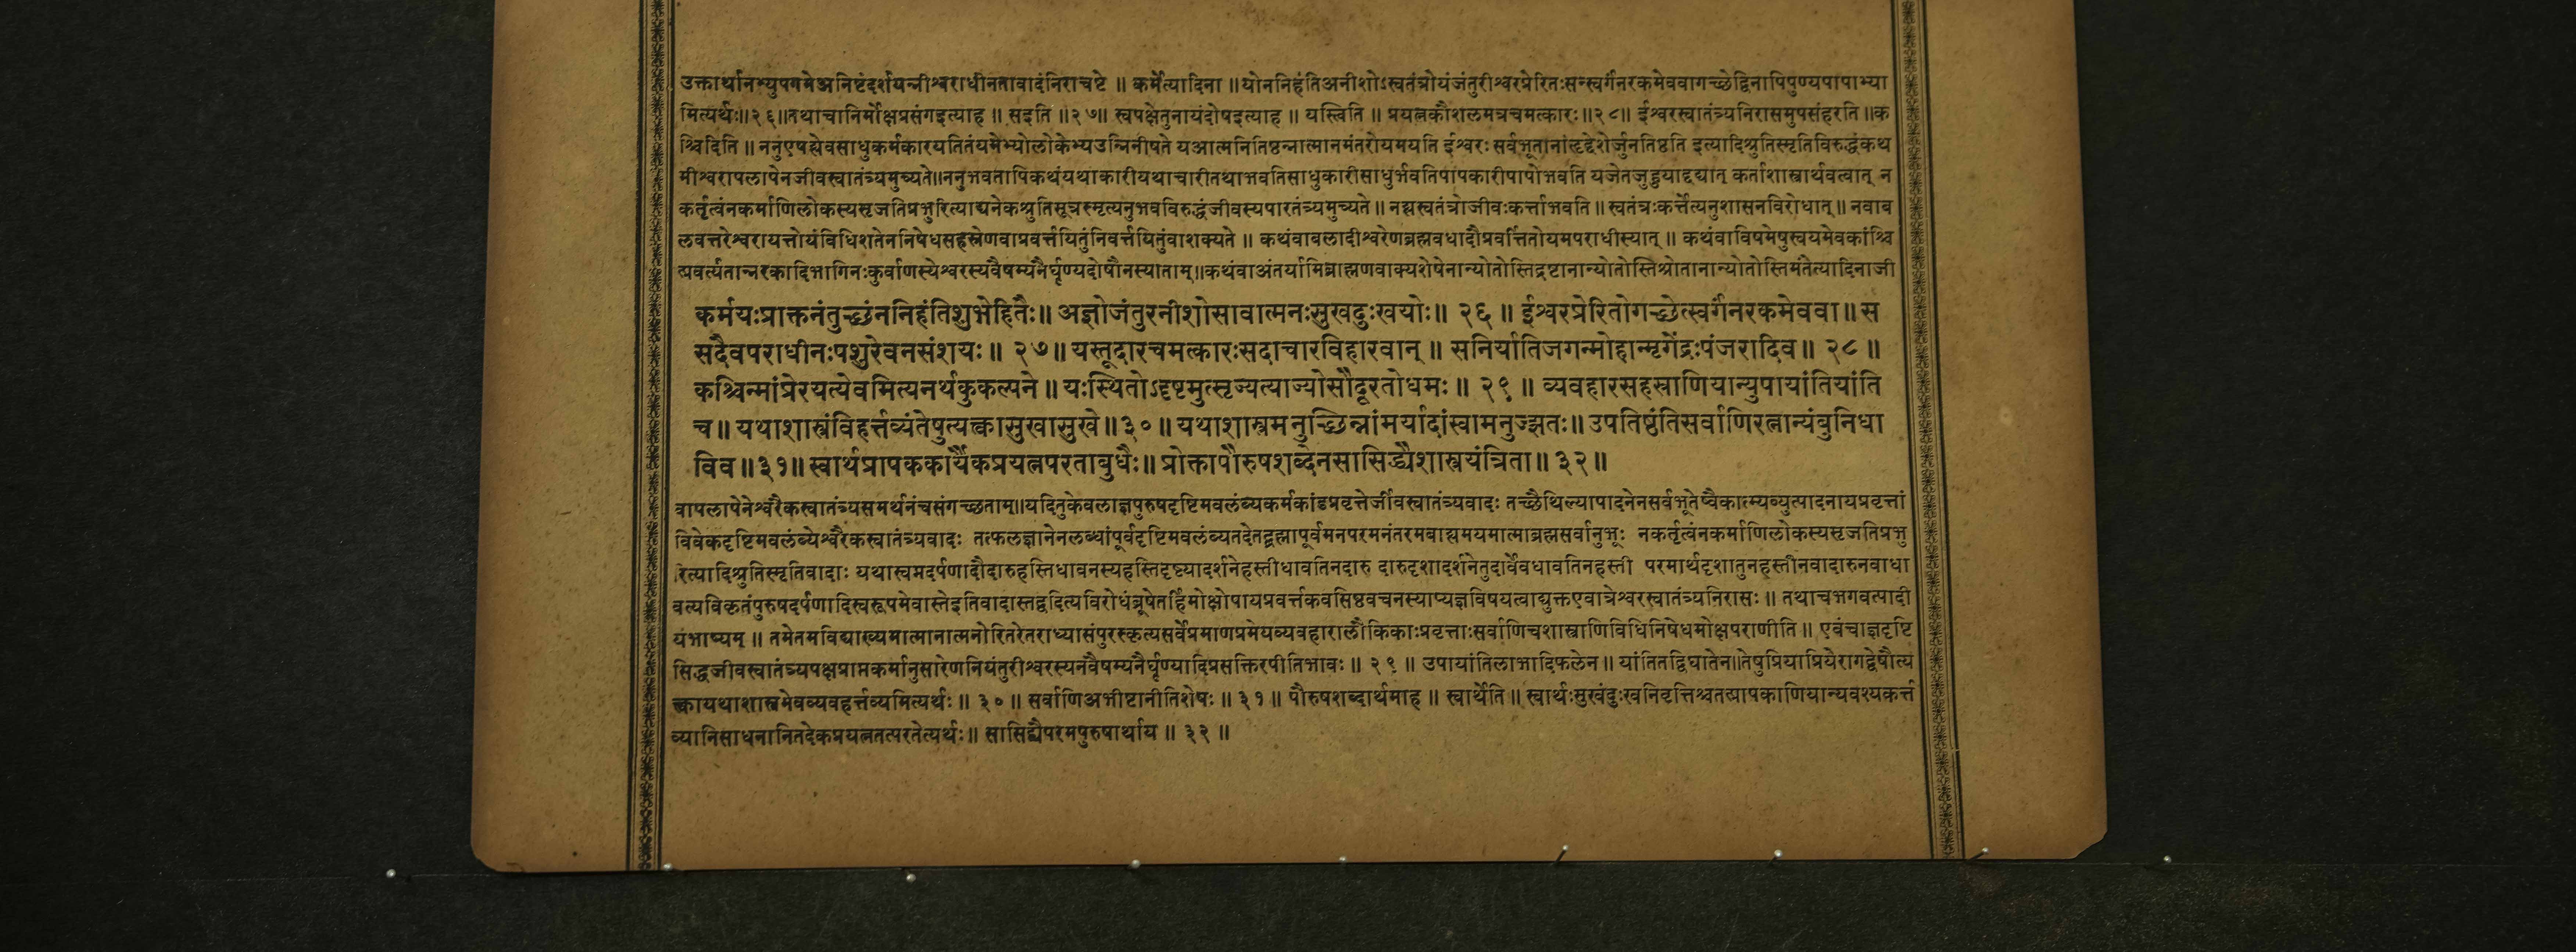 उक्तार्थानभ्युपगमेअनिष्टंदर्शयन्नीश्वराधीनतावादंनिराचष्टे ॥ कर्मेत्यादिना ॥ योननिहंतिअनीशोऽस्वतंत्रोयंजंतुरीश्वरप्रेरितःसन्स्वर्गंनरकमेववागच्छेद्विनापिपुण्यपापाभ्या
मित्यर्थः॥२६॥तथाचानिर्मोक्षप्रसंगइत्याह ॥ सइति ॥२७॥ स्वपक्षेतुनायंदोषइत्याह ॥ यस्त्विति ॥ प्रयत्नकौशलमत्रचमत्कारः॥२८॥ ईश्वरस्वातंत्र्यनिरासमुपसंहरति ॥क
श्चिदिति ॥ ननुएषह्येवसाधुकर्मकारयतितंयमेभ्योलोकेभ्यउन्निनीषते यआत्मनितिष्ठन्नात्मानमंतरोयमयति ईश्वरः सर्वभूतानांहृद्देशेर्जुनतिष्ठति इत्यादिश्रुतिस्मृतिविरुद्धंकथ
मीश्वरापलापेनजीवस्वातंत्र्यमुच्यते॥ननुभवतापिकथंयथाकारीयथाचारीतथाभवतिसाधुकारीसाधुर्भवतिपापकारीपापोभवति यजेतजुहुयाद्दद्यात् कर्ताशास्त्रार्थवत्वात् न
कर्तृत्वंनकर्माणिलोकस्यसृजतिप्रभुरित्याद्यनेकश्रुतिसूत्रस्मृत्यनुभवविरुद्धंजीवस्यपारतंत्र्यमुच्यते॥ नह्यस्वतंत्रोजीवःकर्त्ताभवति॥ स्वतंत्रःकर्त्तेत्यनुशासनविरोधात्॥ नवाब
लवत्तरेश्वरायत्तोयंविधिशतेननिषेधसहस्रेणवाप्रवर्त्तयितुंनिवर्त्तयितुंवाशक्यते ॥ कथंवाबलादीश्वरेणब्रह्मवधादौप्रवर्त्तितोयमपराधीस्यात् ॥ कथंवाविषमेषुस्वयमेवकांश्चि
त्प्रवर्त्यतान्नरकादिभागिनःकुर्वाणस्येश्वरस्यवैषम्यनैर्घृण्यदोषौनस्याताम्॥कथंवाअंतर्यामिब्राह्मणवाक्यशेषेनान्योतोस्तिद्रष्टानान्योतोस्तिश्रोतानान्योतोस्तिमंतेत्यादिनाजी
कर्मयःप्राक्तनंतुच्छंननिहंतिशुभेहितैः॥ अज्ञोजंतुरनीशोसावात्मनःसुखदुःखयोः॥ २६ ॥ ईश्वरप्रेरितोगच्छेत्स्वर्गंनरकमेववा॥ स
सदैवपराधीनःपशुरेवनसंशयः॥ २७॥ यस्तूदारचमत्कारःसदाचारविहारवान् ॥ सनिर्यातिजगन्मोहान्मृगेंद्रःपंजरादिव॥ २८ ॥
कश्चिन्मांप्रेरयत्येवमित्यनर्थकुकल्पने॥ यःस्थितोऽदृष्टमुत्सृज्यत्याज्योसौदूरतोधमः॥ २९ ॥ व्यवहारसहस्राणियान्युपायांतियांति
च॥ यथाशास्त्रंविहर्त्तव्यंतेषुत्यत्क्वासुखासुखे॥३०॥ यथाशास्त्रमनुच्छिन्नांमर्यादांस्वामनुज्झतः॥ उपतिष्ठंतिसर्वाणिरत्नान्यंबुनिधा
विव॥३१॥ स्वार्थप्रापककार्यैकप्रयत्नपरताबुधैः॥ प्रोक्तापौरुषशब्देनसासिद्ध्यैशास्त्रयंत्रिता॥ ३२॥
वापलापेनेश्वरैकस्वातंत्र्यसमर्थनंचसंगच्छताम्॥यदितुकेवलाज्ञपुरुषदृष्टिमवलंब्यकर्मकांडप्रवृत्तेर्जीवस्वातंत्र्यवादः तच्छैथिल्यापादनेनसर्वभूतेष्वैकात्म्यव्युत्पादनायप्रवृत्तां
विवेकदृष्टिमवलंब्येश्वरैकस्वातंत्र्यवादः तत्फलज्ञानेनलब्धांपूर्वदृष्टिमवलंब्यतदेतद्ब्रह्मापूर्वमनपरमनंतरमबाह्यमयमात्माब्रह्मसर्वानुभूः नकर्तृत्वंनकर्माणिलोकस्यसृजतिप्रभु
रित्यादिश्रुतिस्मृतिवादाः यथास्वप्नदर्पणादौदारुहस्तिधावनस्यहस्तिदृष्ट्यादर्शनेहस्तीधावतिनदारु दारुदृशादर्शनेतुदार्वेवधावतिनहस्ती परमार्थदृशातुनहस्तीनवादारुनवाधा
वत्यविकृतंपुरुषदर्पणादिस्वरूपमेवास्तेइतिवादास्तद्वदित्यविरोधंब्रूषेतर्हिमोक्षोपायप्रवर्त्तकवसिष्ठवचनस्याप्यज्ञविषयत्वाद्युक्तएवात्रेश्वरस्वातंत्र्यनिरासः॥ तथाचभगवत्पादी
यंभाष्यम् ॥ तमेतमविद्याख्यमात्मानात्मनोरितरेतराध्यासंपुरस्कृत्यसर्वेप्रमाणप्रमेयव्यवहारालौकिकाःप्रवृत्ताःसर्वाणिचशास्त्राणिविधिनिषेधमोक्षपराणीति॥ एवंचाज्ञदृष्टि
सिद्धजीवस्वातंत्र्यपक्षप्राप्तकर्मानुसारेणनियंतुरीश्वरस्यनवैषम्यनैर्घृण्यादिप्रसक्तिरपीतिभावः॥ २९ ॥ उपायांतिलाभादिफलेन॥ यांतितद्विघातेन॥तेषुप्रियाप्रियेरागद्वेषौत्य
त्क्वायथाशास्त्रमेवव्यवहर्त्तव्यमित्यर्थः॥ ३० ॥ सर्वाणिअभीष्टानीतिशेषः ॥ ३१ ॥ पौरुषशब्दार्थमाह ॥ स्वार्थेति॥ स्वार्थःसुखंदुःखनिवृत्तिश्चतत्प्रापकाणियान्यवश्यकर्त्त
व्यानिसाधनानितदेकप्रयत्नतत्परतेत्यर्थः॥ सासिद्ध्यैपरमपुरुषार्थाय ॥ ३२ ॥